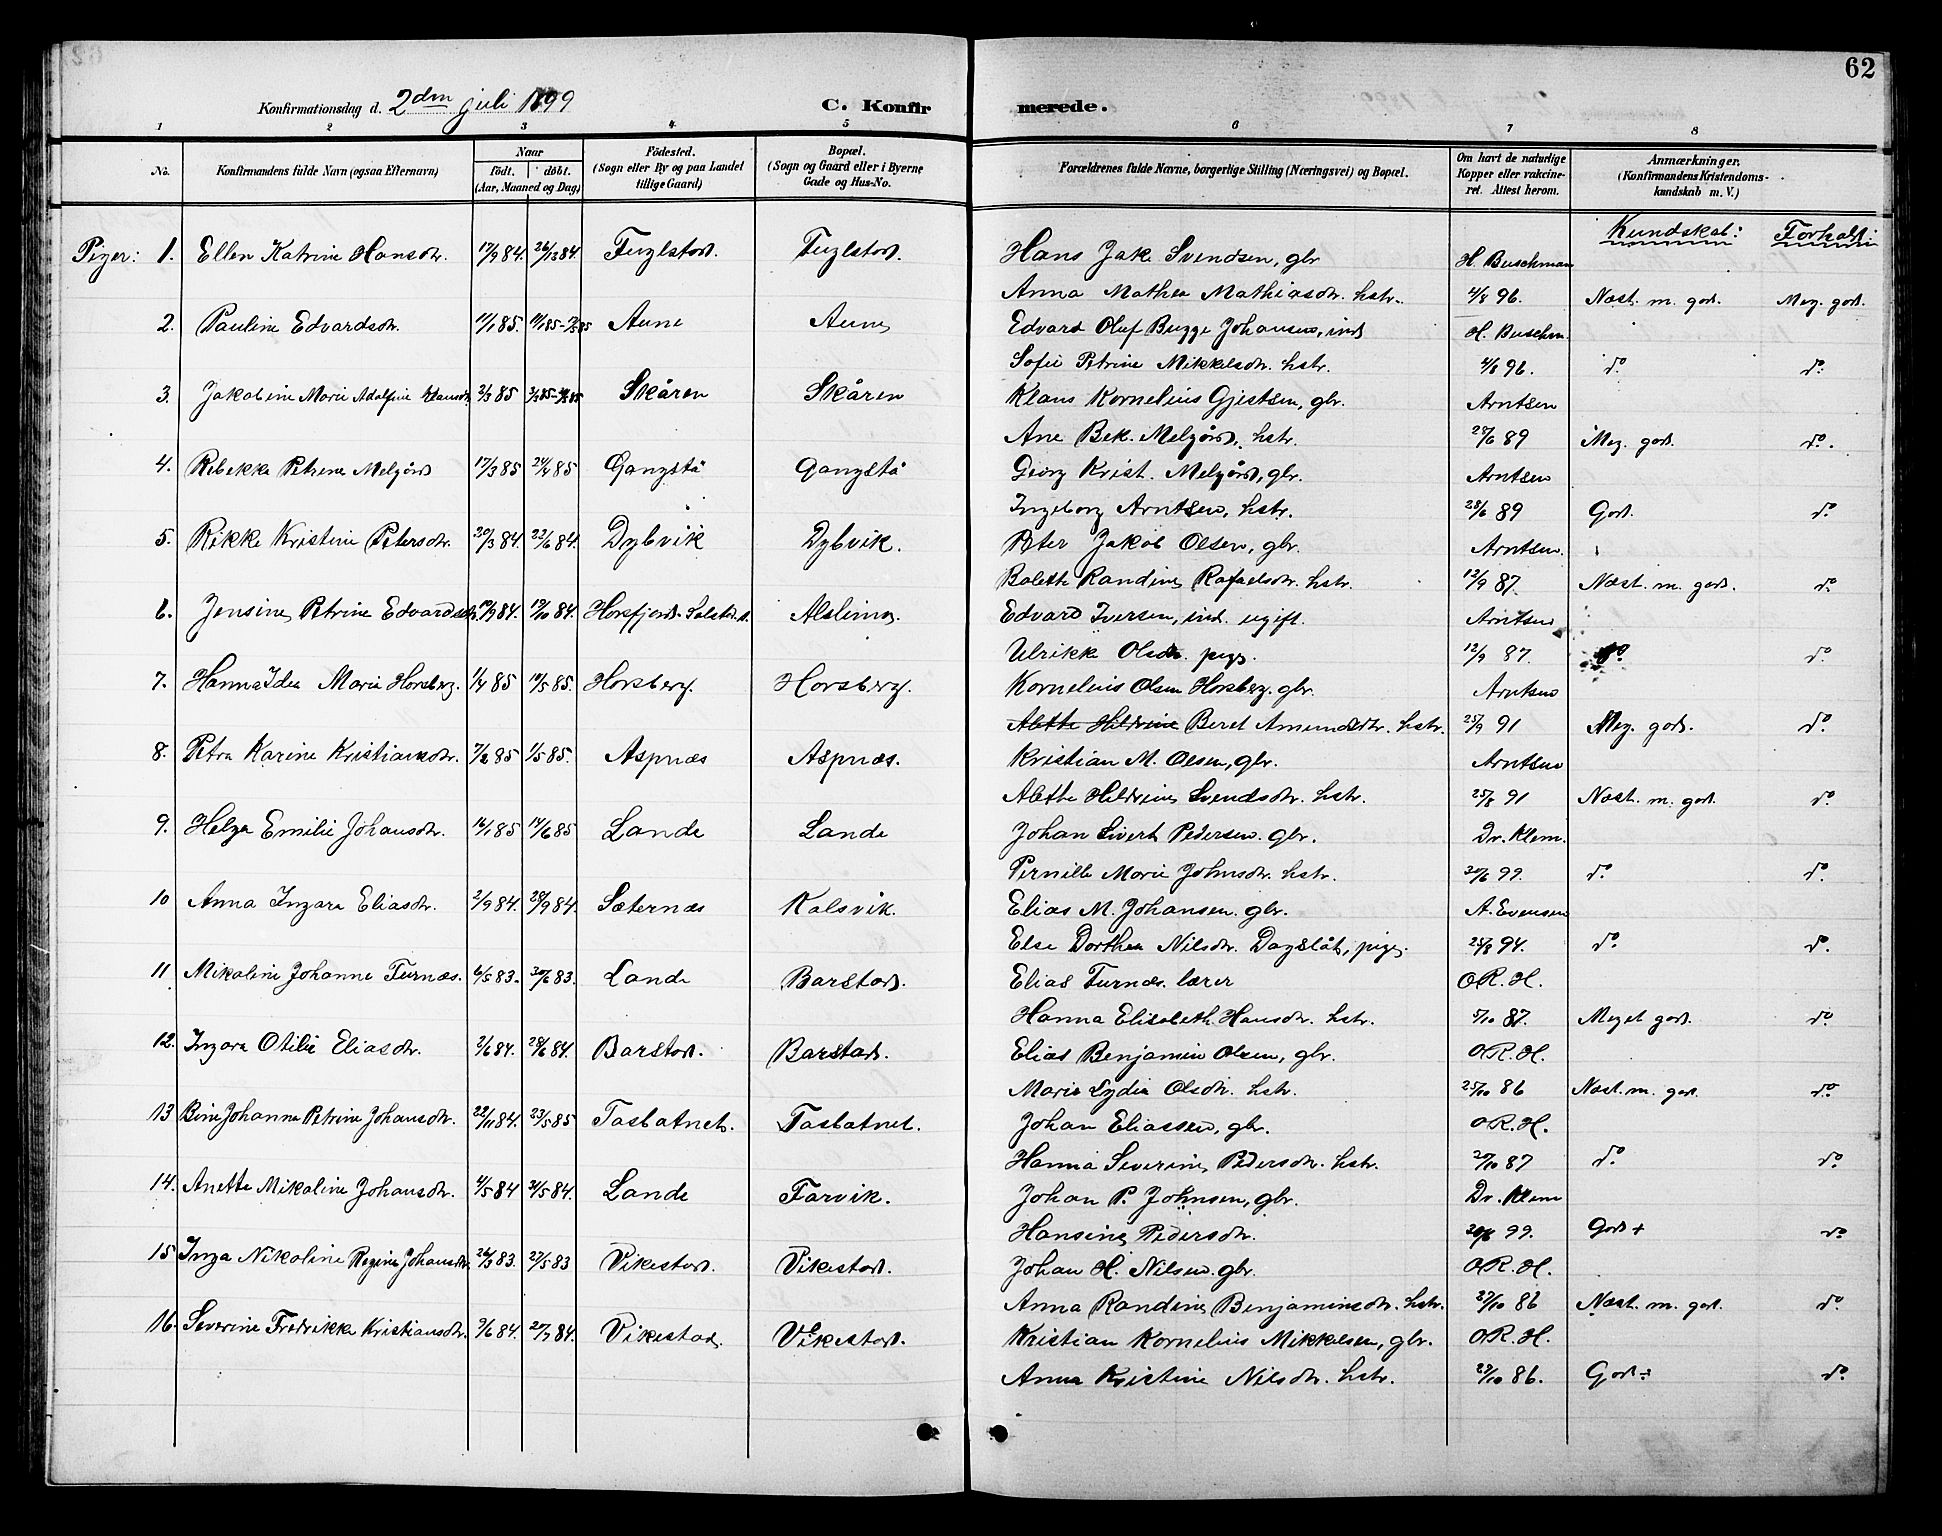 62
Konfirmationsdag d. 2den juli 1899 C. Konfirmerede.
1 2 3 4 5 6 7 8
No. Konfirmandens fulde Navn (ogsaa Efternavn) Naar födt. döbt. (Aar, Maaned og Dag) Födested. (Sogn eller By og paa Landet tillige Gaard) Bopæl. (Sogn og Gaard eller i Byerne Gade og Hus-No. Forældrenes fulde Navne, borgerlige Stilling (Næringsvei) og Bopæl. Om havt de naturlige Kopper eller vakcineret. Attest herom. Anmærkninger. (Konfirmandens Kristendomskundskab m. V.)
Kundskab: Forhold:
Piger: 1. Ellen Katrine Hansdtr. 17/9 84. 26/12 84. Fuglstad. Fuglstad. Hans Jak. Svendsen, gbr H. Buschman
Anna Mathea Mathiasdtr. hstr. 4/8 96. Næst. m. god. Meg. god.
2. Pauline Edvardsdtr. 11/1 85. Aune Aune Edvard Oluf Bugge Johansen, ind H. Buschm.
Sofie Petrine Mikkelsdtr. hstr. 4/8 96. do. do.
3. Jakobine Marie Adolfine Klausdtr. 2/3 85 Skåren Skåren Klaus Kornelius Gjertsen, gbr. Arntsen
Ane Bek. Melgård, hstr. 28/6 89 Meg. god. do.
4. Rebekka Petrine Melgård 17/3 85 24/4 85 Gangstå Gangstå Georg Krist. Melgård, gbr. Arntsen
Ingeborg Arntsen, hstr. 28/6 89 God. do
5. Rikke Kristine Petersdtr. 20/3 84. 22/6 84. Dybvik Dybvik. Peter Jakob Olsen, gbr. Arntsen.
Bolette Randine Rafaelsdtr. hstr. 12/9 87. Næst. m. god. do
6. Jensine Petrine Edvardsdtr. 19/9 84. 19/10 84. Horsfjord. Solstad. Alslimo. Edvard Iversen, ind. ugift. Arntsen
Ulrikke Olsdtr. pige. 12/9 87. do do
7. Hanna Idea Marie Horsberg. 1/4 85 10/5 85. Horsberg. Horsberg. Kornelius Olsen Horsberg. gbr. Arntsen
Alette Hildrine Beret Amundsdtr. hstr. 25/9 91 Meg. god. do
8. Petra Karine Kristiansdtr. 7/2 85 1/5 85. Aspnæs Aspnæs. Kristian M. Olsen, gbr. Arntsen
Alette Hildrine Svendsdtr. hstr. 25/8 91 Næst. m. god. do
9. Helga Emilie Johansdtr. 16/1 85 14/6 85 Lande Lande Johan Sivert Pedersen. gbr. Dr. Klem.
Pernille Marie Johnsdtr. hstr. 20/6 99. do. do.
10 Anna Ingara Eliasdtr. 2/9 84. 28/9 84. Sæternæs Kalsvik. Elias M. Johansen. gbr. A. Evensen
Else Dorthea Nilsdtr. Dagslåt, pige. 25/8 94. do. do.
11 Mikaline Johanne Turnæs. 6/5 83. 30/6 83. Lande Barstad. Elias Turnæs. lærer O.R.H.
Hanna Elisabeth Hansdtr. hstr. 5/10 87. Meget god. do.
12. Ingara Otilie Eliasdtr. 2/6 84. 28/6 84. Barstad. Barstad. Elias Benjamin Olsen, gbr. O.R.H.
Marie Lydia Olsdtr. hstr. 25/10 86 Næst. m. god. do.
13 Bine Johanna Petrine Johansdtr. 22/11 84. 23/5 85 Tosbatnet. Tosbatnet. Johan Eliassen, gbr. O.R.H.
Hanna Severine Pedersdtr. hstr. 27/10 87 do. do.
14. Anette Mikaline Johansdtr. 4/5 84 31/5 84. Lande Farvik. Johan P. Johnsen, gbr. Dr. Klem
Hansine Pedersdtr. 20/6 99. God + do
15 Inga Nikoline Regine Johansdtr. 26/3 83. 27/5 83 Vikestad. Vikestad. Johan H. Nilsen. gbr. O.R.H.
Anna Randine Benjaminsdtr. hstr. 27/10 86 Næst. m. god. do.
16. Severine Fredrikke Kristiansdtr. 9/6 84. 27/7 84. Vikestad. Vikestad. Kristian Kornelius Mikkelsen, gbr. O.R.H.
Anna Kristine Nilsdtr. hstr. 27/10 86. God ÷ do.